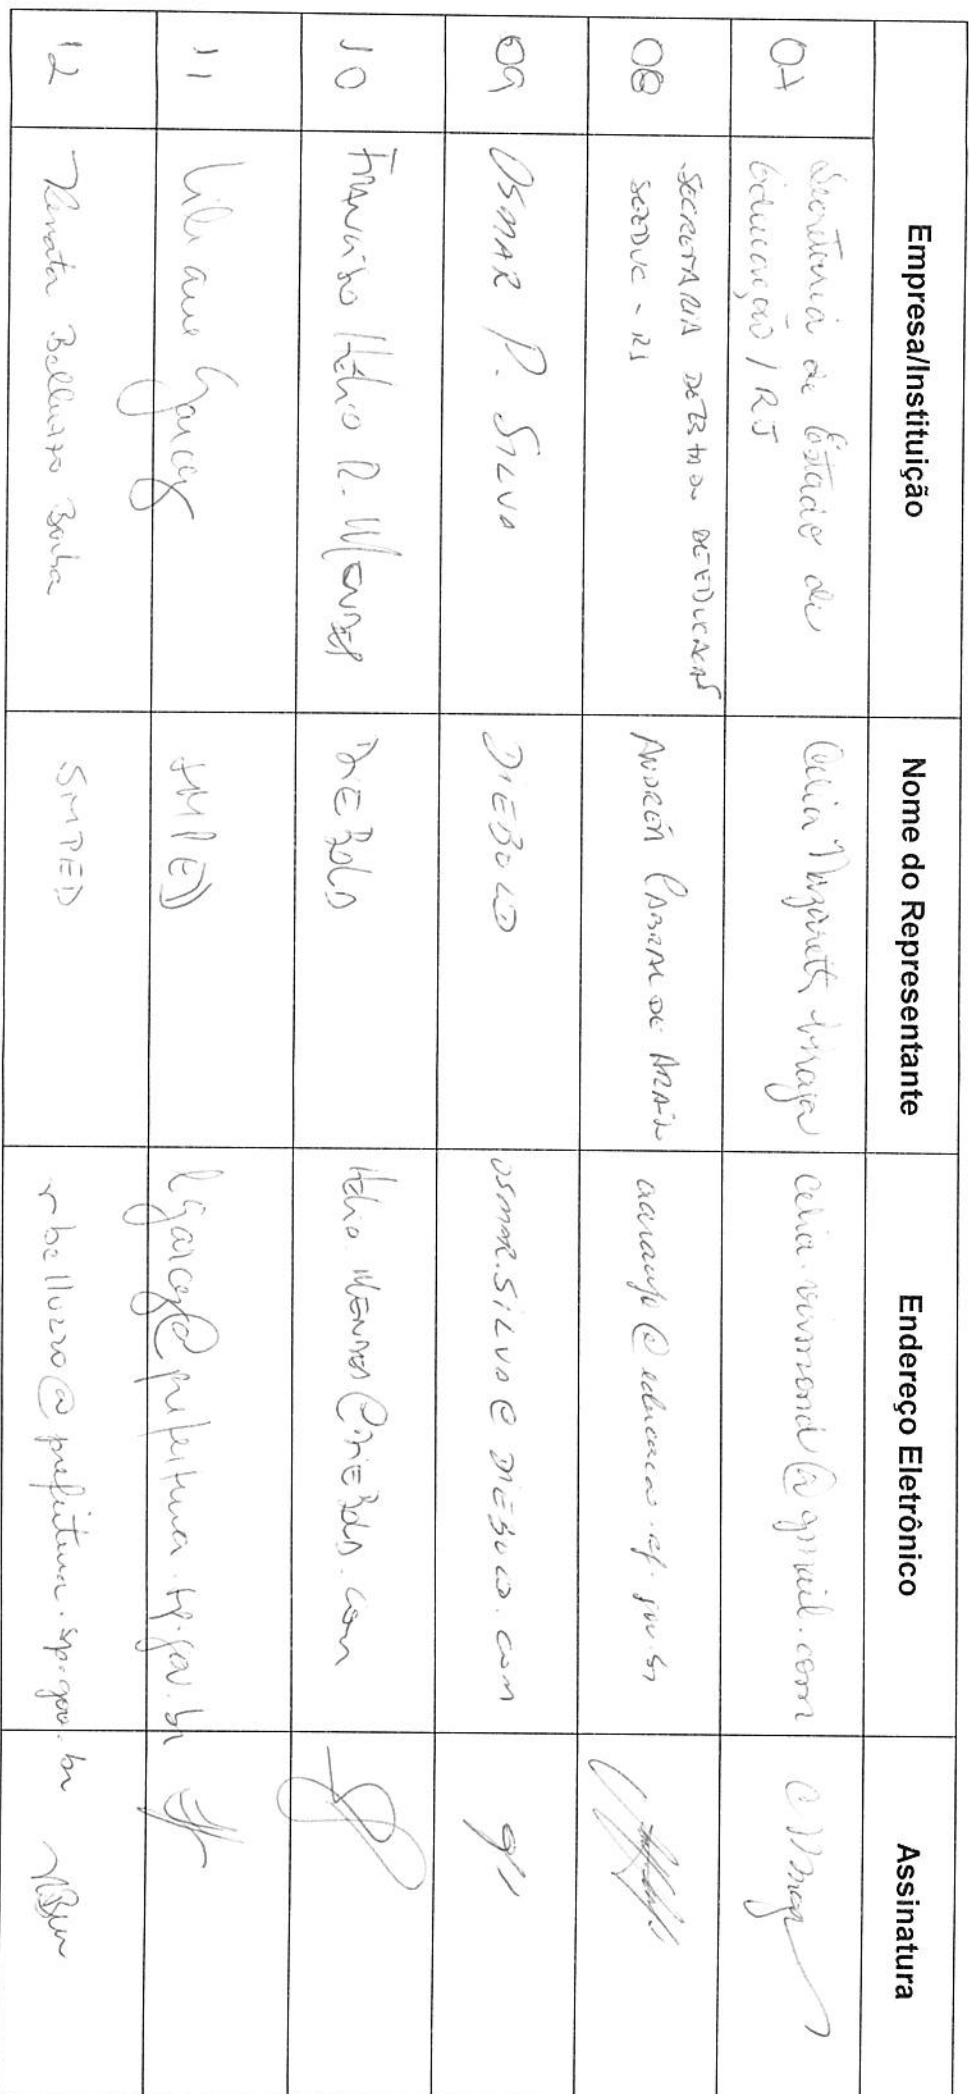 Empresa/Instituição
Nome do Representante
Endereço Eletrônico
Assinatura
07
Secretaria de Estado de
Educação / RJ
Celia Nazareth
celia.vismond@gmail.com
08
SECRETARIA DE ESTADO DE EDUCACAO
SEEDUC - RJ
ANDRÉA CABRAL DE
09
OSMAR P. SILVA
DIEBOLD
OSMAR.SILVA@DIEBOLD.COM
10
FRANCISCO HÉLIO R. MENDES
DIEBOLD
HELIO.MENDES@DIEBOLD.COM
11
Liliane Garcez
SMPED
lgarcez@prefeitura.sp.gov.br
12
Renata Belluzzo Borba
SMPED
rbelluzzo@prefeitura.sp.gov.br